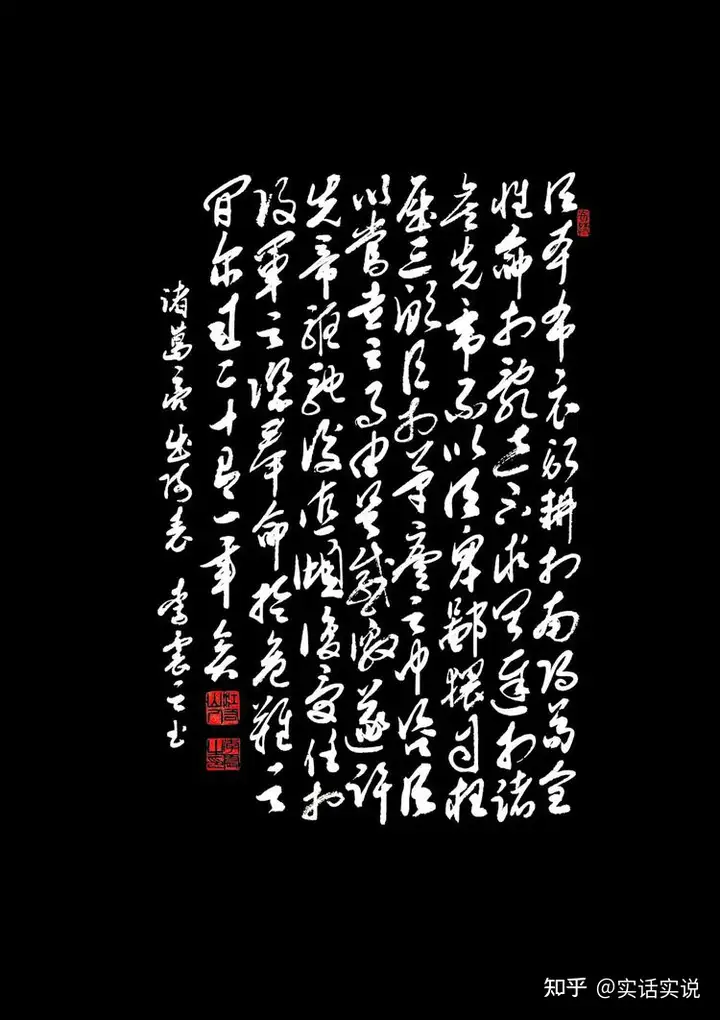 臣本布衣躬耕於南陽苟全
性命於亂世不求聞達於諸
侯先帝不以臣卑鄙猥自枉
屈三顧臣於草廬之中咨臣
以當世之事由是感激遂許
先帝驅馳後值傾覆受任於
敗軍之際奉命於危難之
間爾來二十有一年矣
諸葛亮出師表 李震之书
知乎 @实话实说